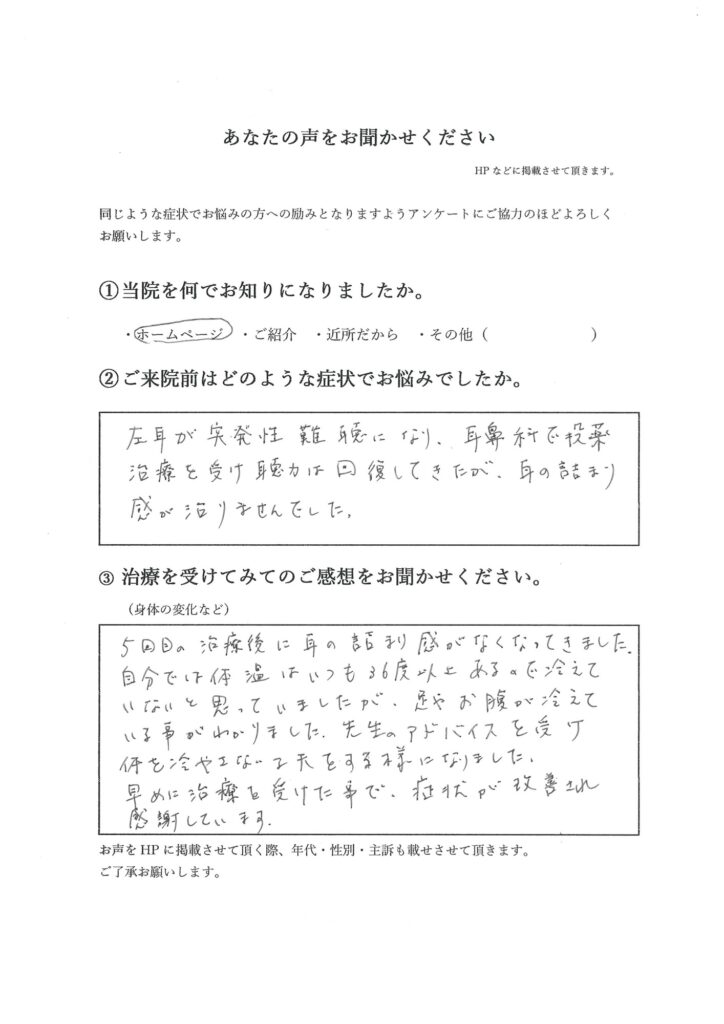 あなたの声をお聞かせください
HPなどに掲載させて頂きます。
同じような症状でお悩みの方への励みとなりますようアンケートにご協力のほどよろしく
お願いします。
①当院を何でお知りになりましたか。
・ホームページ ・ご紹介 ・近所だから ・その他（ ）
②ご来院前はどのような症状でお悩みでしたか。
左耳が突発性難聴になり、耳鼻科で投薬
治療を受け聴力は回復してきたが、耳の詰まり
感が治りませんでした。
③ 治療を受けてみてのご感想をお聞かせください。
（身体の変化など）
5回目の治療後に耳の詰まり感がなくなってきました。
自分では体温はいつも36度以上あるので冷えて
いないと思っていましたが、足やお腹が冷えて
いる事がわかりました。先生のアドバイスを受け
体を冷やさない工夫をする様になりました。
早めに治療を受けた事で、症状が改善され
感謝しています。
お声をHPに掲載させて頂く際、年代・性別・主訴も載せさせて頂きます。
ご了承お願いします。